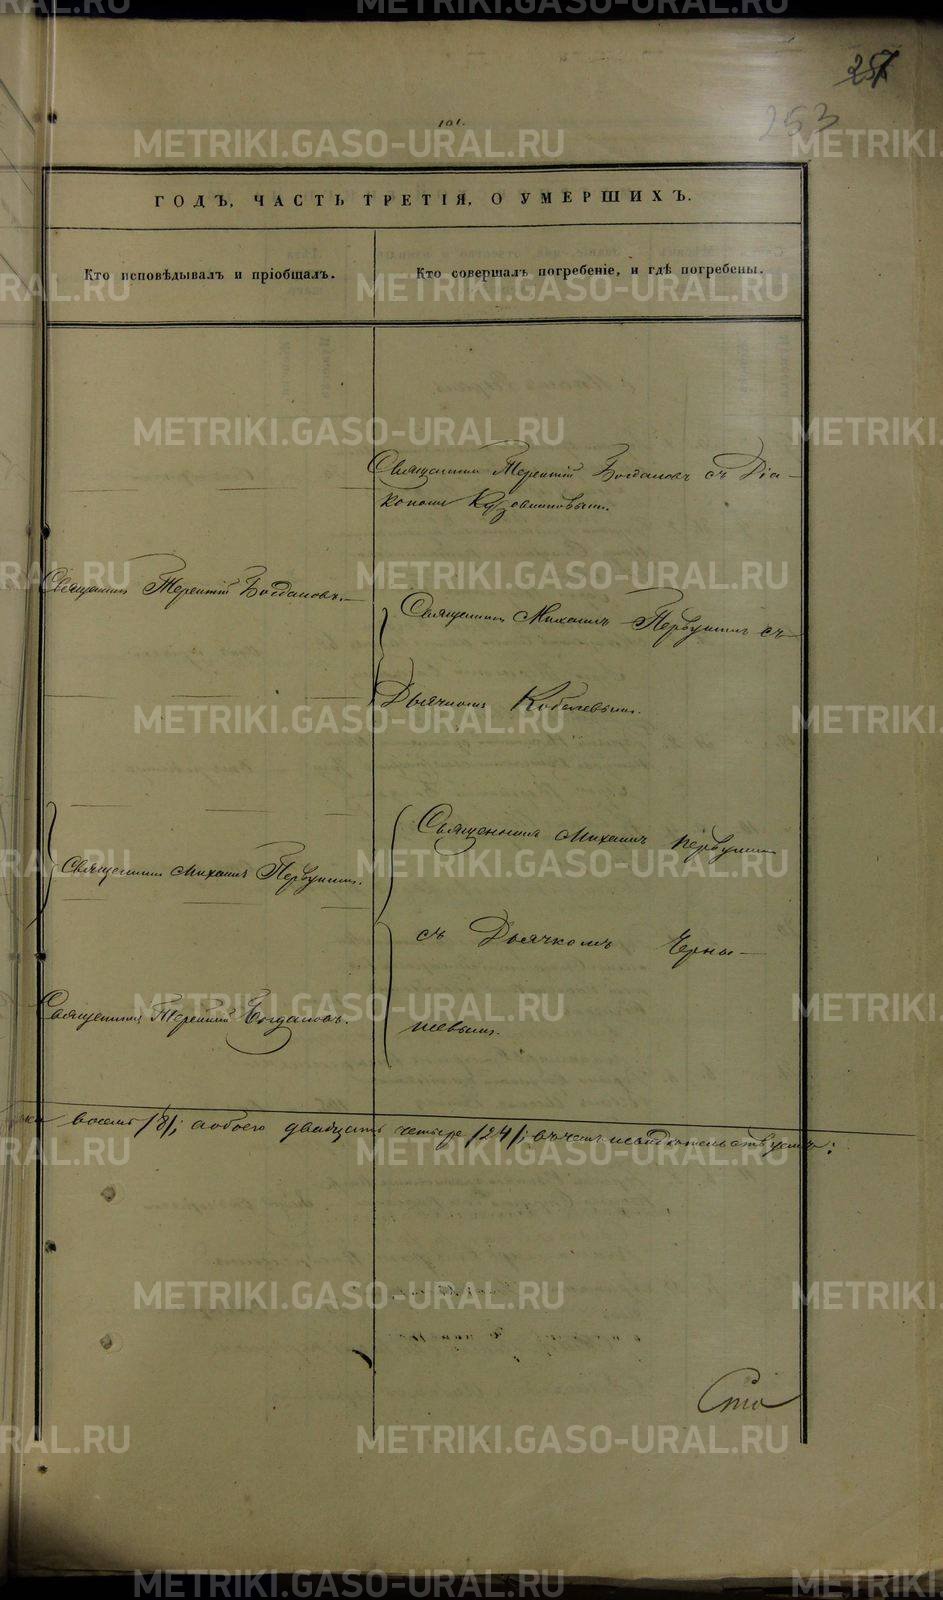 257
253
101.
ГОДЪ, ЧАСТЬ ТРЕТІЯ, О УМЕРШИХЪ.
Кто исповѣдывалъ и пріобщалъ.
Кто совершалъ погребеніе, и гдѣ погребены.
Священникъ Терентій Богдановъ съ Діа-
кономъ
Священникъ Терентій Богдановъ.
Священникъ Михаилъ Первушинъ съ
Дьячкомъ Кобелевымъ.
Священникъ Михаилъ Первушинъ.
Священникъ Михаилъ Первушинъ
съ Дьячкомъ Черны-
шевымъ.
Священникъ Терентій Богдановъ.
восемь /8/; а обоего двадцать четыре /24/; въ чемъ и свидѣтельствуемъ:
Сто
METRIKI.GASO-URAL.RU